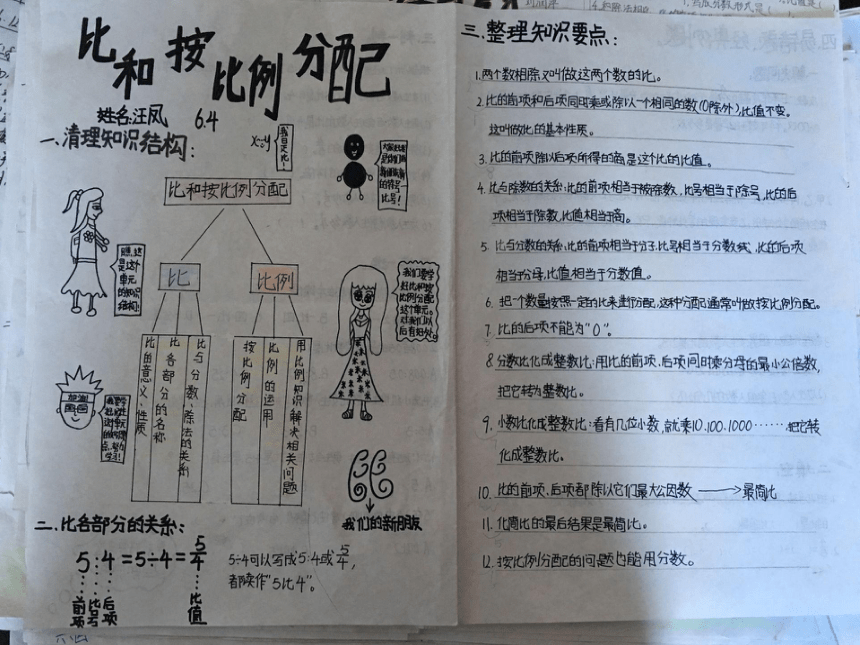 比和按比例分配
姓名:汪凤 6.4
一.清理知识结构:
x÷y
比和按比例分配
比
比例
比的意义、性质
比各部分的名称
比与分数、除法的关系
按比例分配
比例的运用
用比例知识解决相关问题
我们的新朋友
二.比各部分的关系:
5:4=5÷4=5/4
前项
比号
后项
比值
5÷4可以写成5:4或5/4,
都读作“5比4”。
三.整理知识要点:
1.两个数相除又叫做这两个数的比。
2.比的前项和后项同时乘或除以一个相同的数(0除外),比值不变。
这叫做比的基本性质。
3.比的前项除以后项所得的商是这个比的比值。
4.比与除数的关系:比的前项相当于被除数,比号相当于除号,比的后
项相当于除数,比值相当于商。
5.比与分数的关系:比的前项相当于分子,比号相当于分数线,比的后项
相当于分母,比值相当于分数值。
6.把一个数量按照一定的比来进行分配,这种分配通常叫做按比例分配。
7.比的后项不能为“0”。
8.分数比化成整数比:用比的前项、后项同时乘分母的最小公倍数,
把它转为整数比。
9.小数比化成整数比:看有几位小数,就乘10.100.1000……把它转
化成整数比。
10.比的前项、后项都除以它们最大公因数→最简比
11.化简比的最后结果是最简比。
12.按比例分配的问题也能用分数。